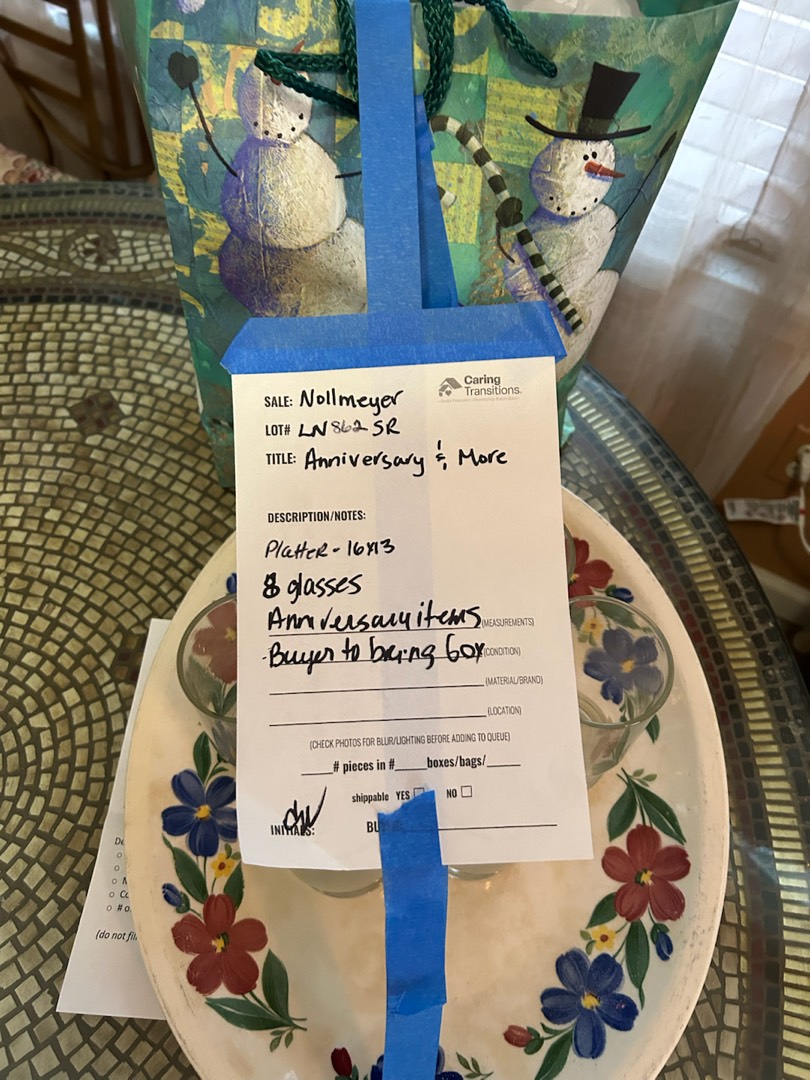 Caring
Transitions.
SALE: Nollmeyer
LOT# LN 862 SR
TITLE: Anniversary & More
DESCRIPTION/NOTES:
Platter - 16x13
8 glasses
Anniversary items (MEASUREMENTS)
-Buyer to bring box (CONDITION)
(MATERIAL/BRAND)
(LOCATION)
(CHECK PHOTOS FOR BLUR/LIGHTING BEFORE ADDING TO QUEUE)
# pieces in # boxes/bags/
shippable YES NO
INITIALS:
(do not